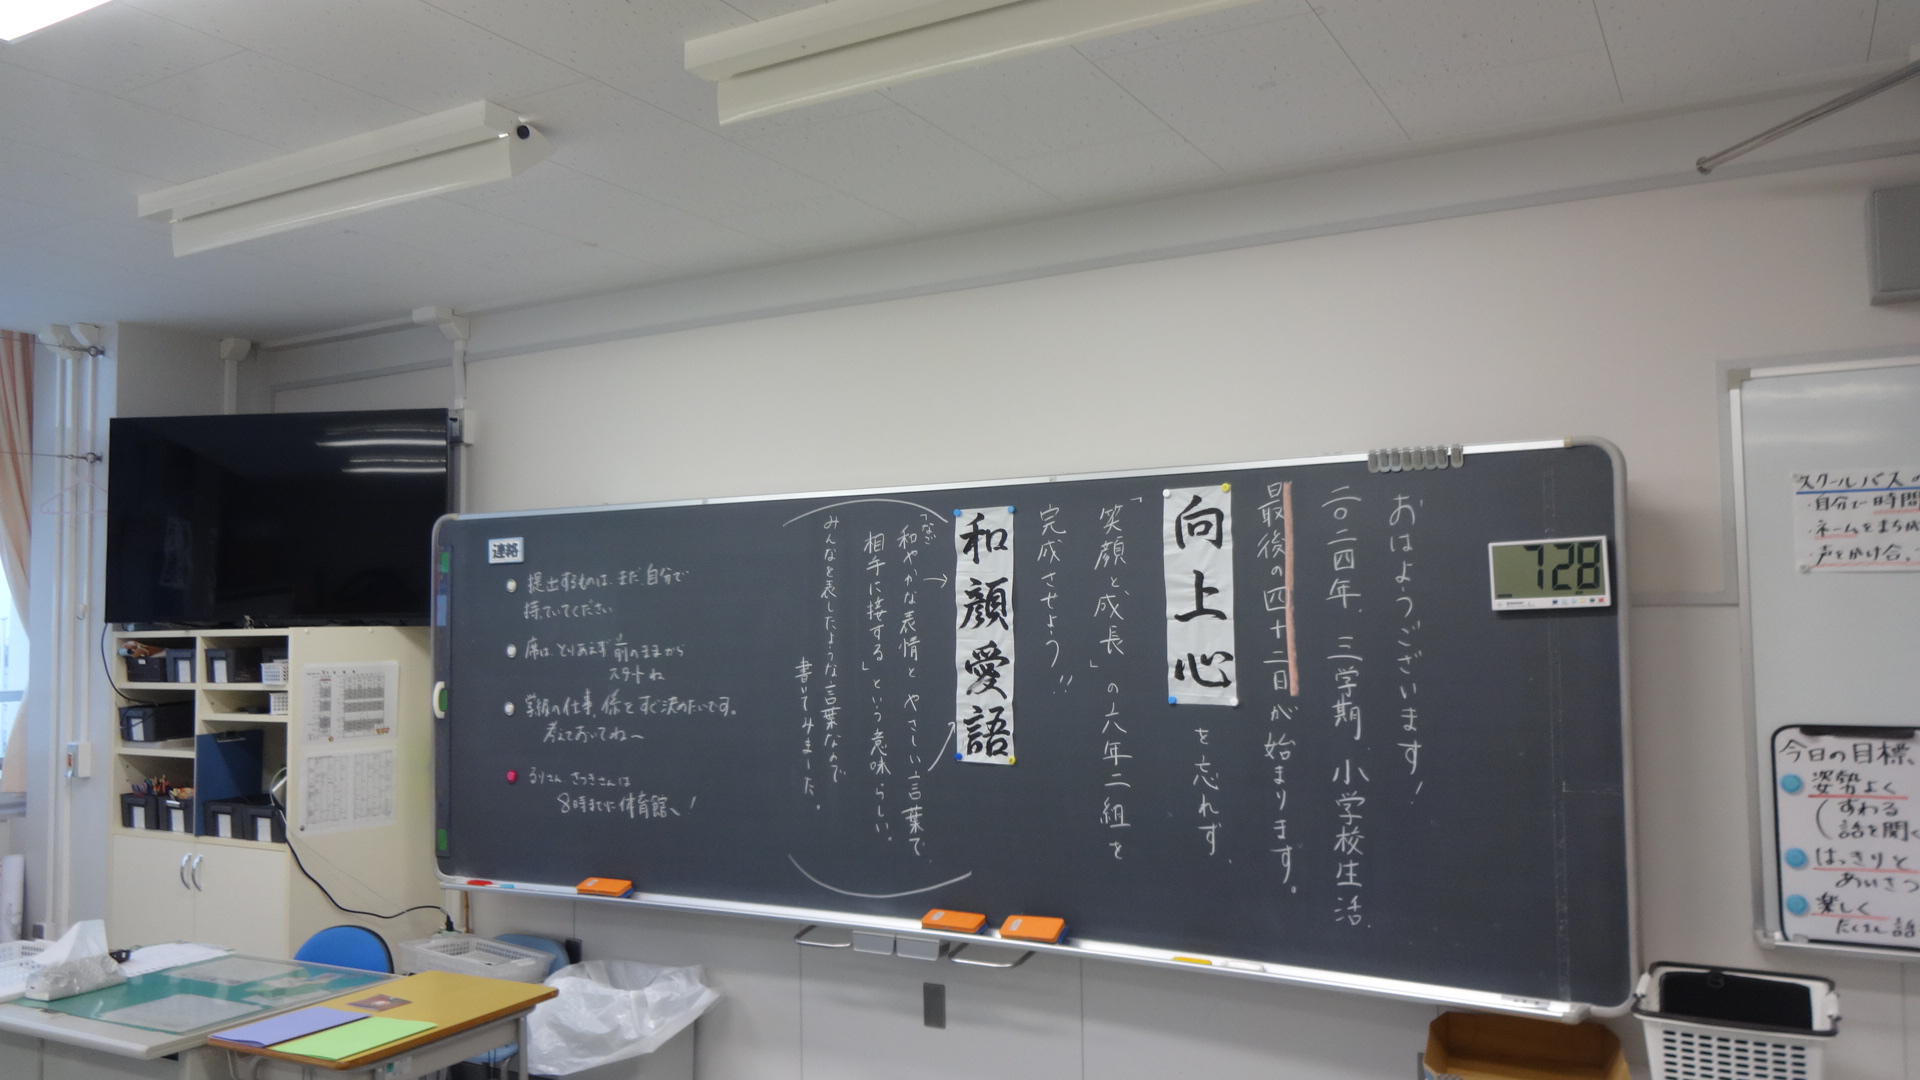 おはようございます!
二〇二四年、三学期、小学校生活、
最後の四十二日が始まります。
向上心を忘れず、
「笑顔と成長」の六年二組を
完成させよう!!
和顔愛語
「和やかな表情と やさしい言葉で、
なご
相手に接する」という意味らしい。
みんなを表したような言葉なので
書いてみました。
連絡
提出するものは、まだ自分で
持っていてください
席は、とりあえず前のままから
スタートね
学級の仕事、係を すぐ決めたいです。
考えておいてね〜
るりさん、さつきさんは
8時までに体育館へ!
728
スクールバスの
・自分で時間
・ネームを
・声をかけ合
今日の目標
姿勢よく
(すわる
話を聞く
はっきりと
あいさつ
楽しく
たくさん話